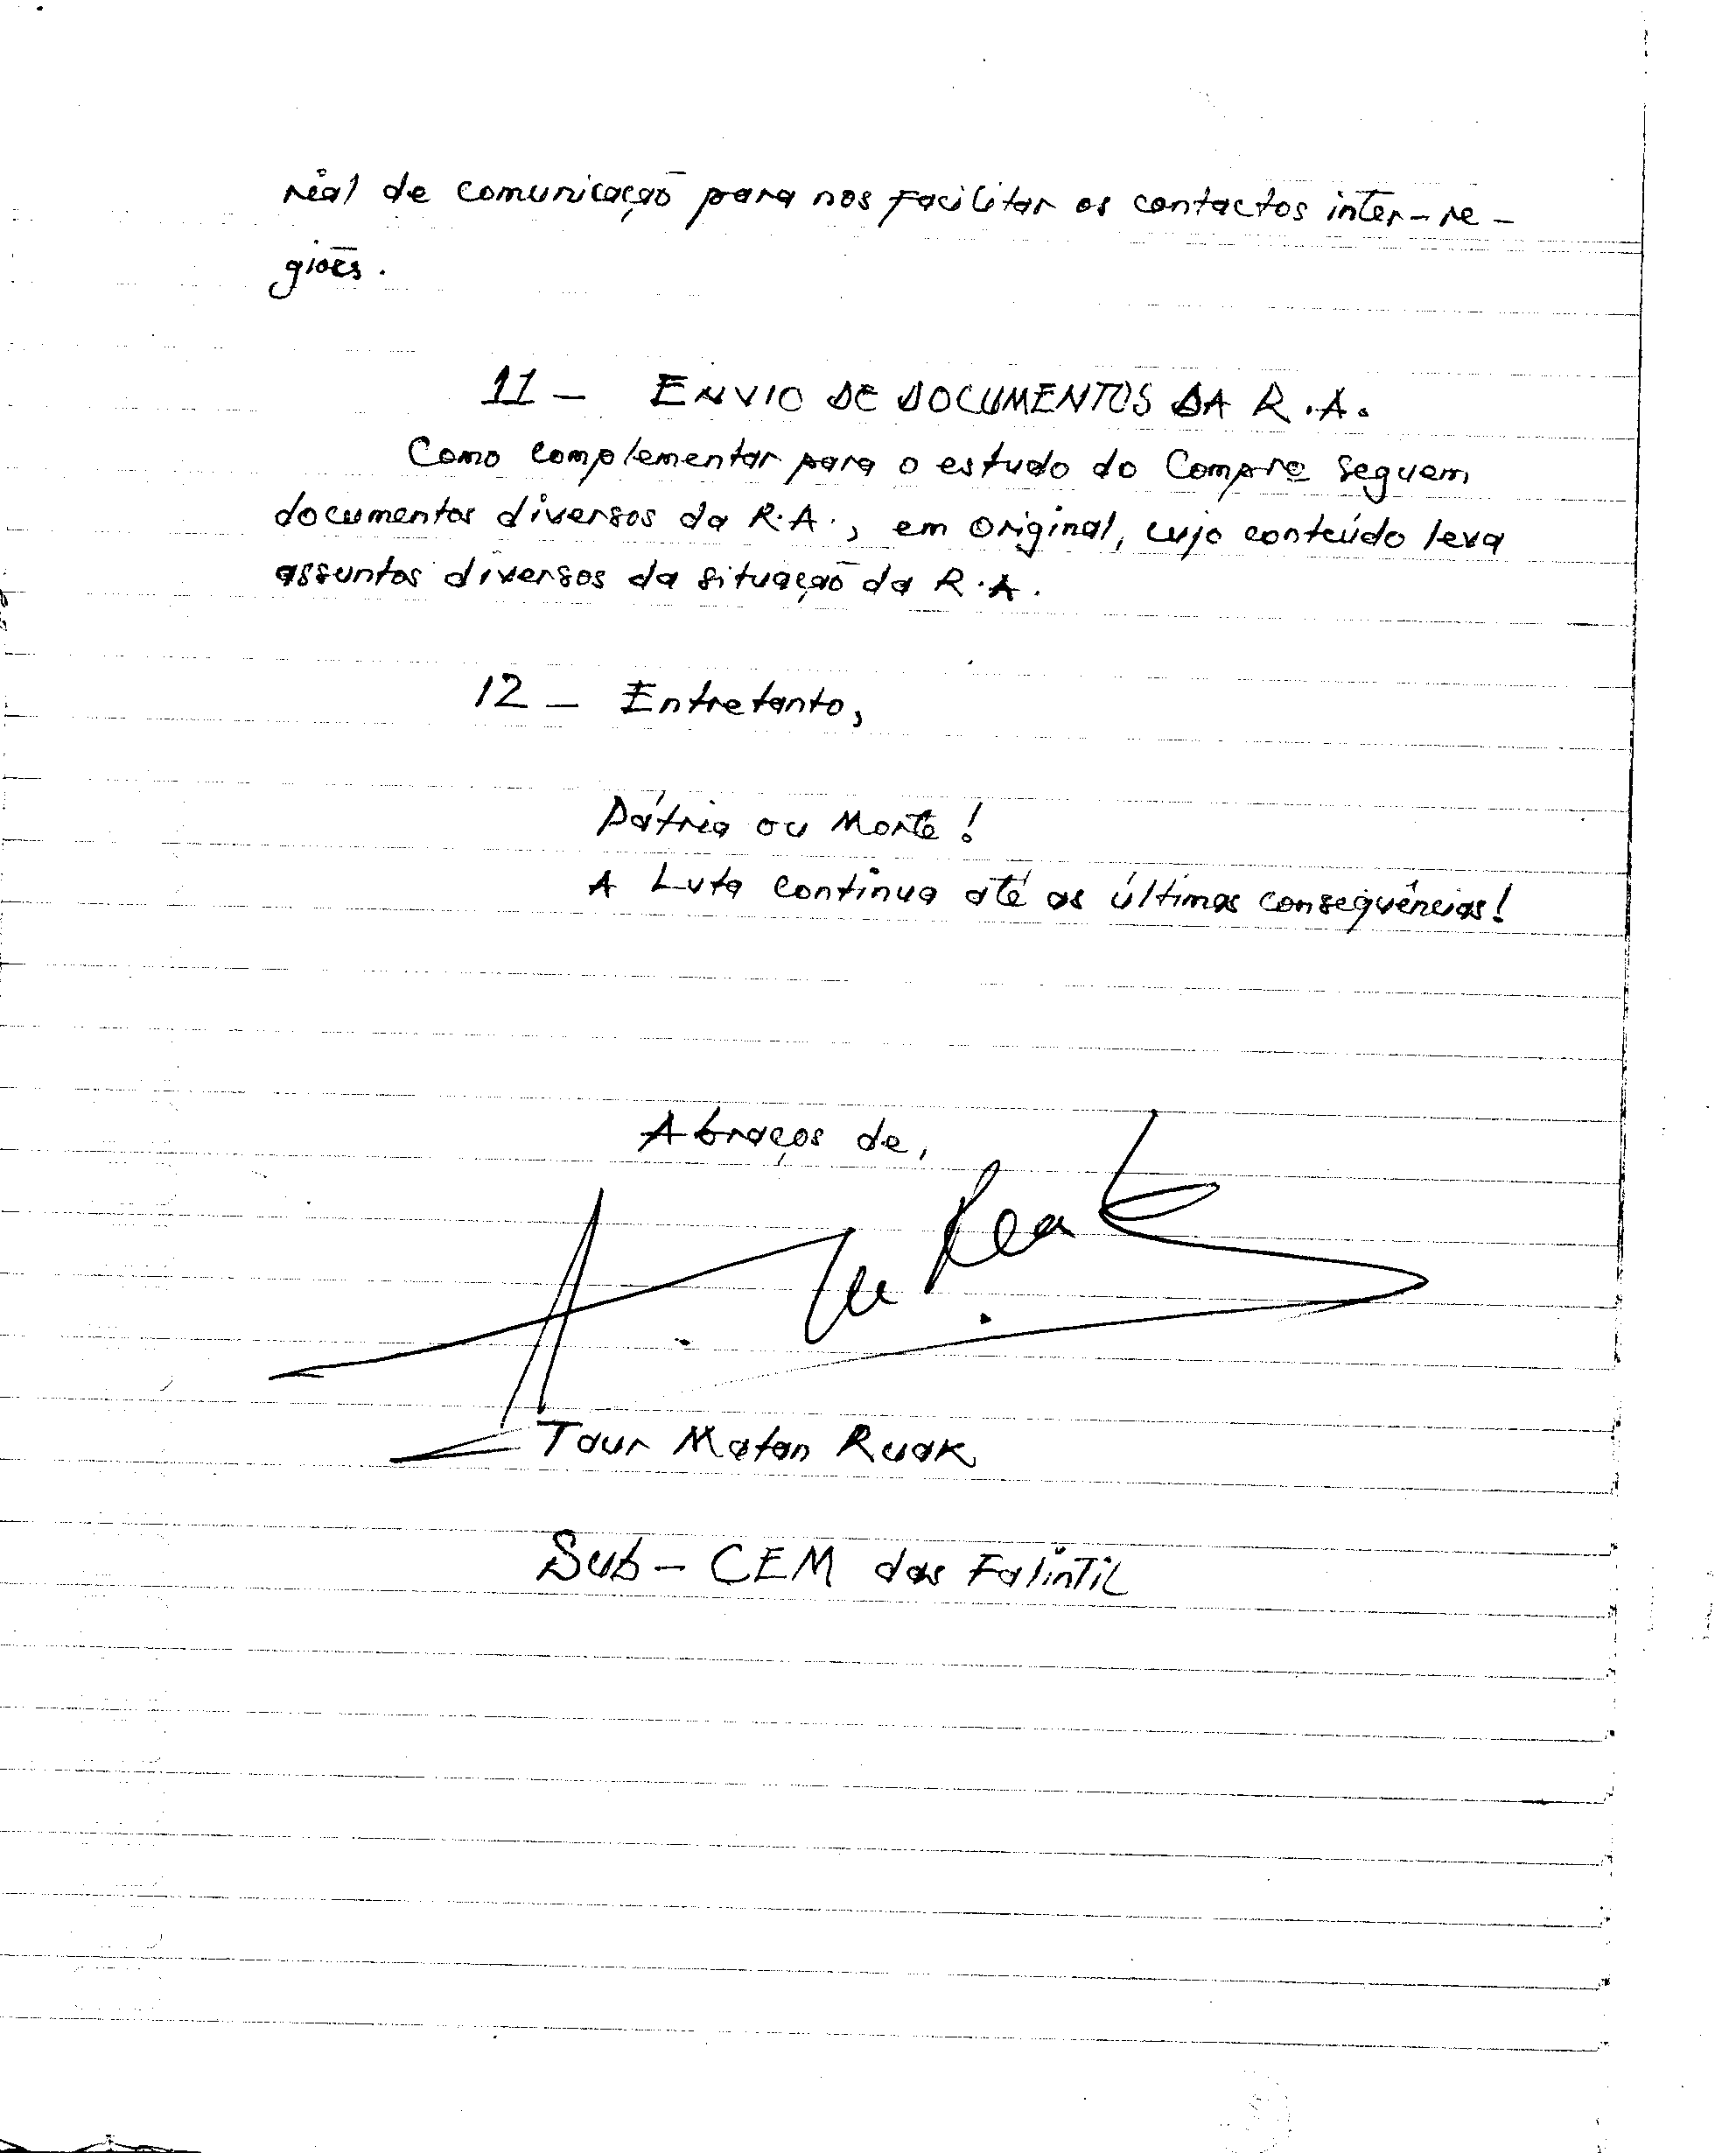 rial de comunicação para nos facilitar os contactos inter-re-
giões.
11 - ENVIO DE DOCUMENTOS DA R.A.
Como complementar para o estudo do Compre seguem
documentos diversos da R.A., em original, cujo conteúdo leva
assuntos diversos da situação da R.A.
12 - Entretanto,
Pátria ou Morte!
A Luta continua até as últimas conseqüências!
Abraços de,
Taur Matan Ruak
Sub-CEM das Falintil